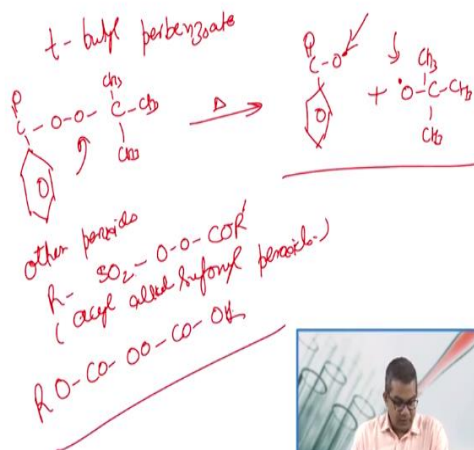 t-butyl perbenzoate
O
C-O-O-C-CH3
CH3
CH3
Δ
O
C-O•
+ •O-C-CH3
CH3
CH3
other peroxide
R-SO2-O-O-COR'
(acyl alkyl sulfonyl peroxide)
RO-CO-OO-CO-OR